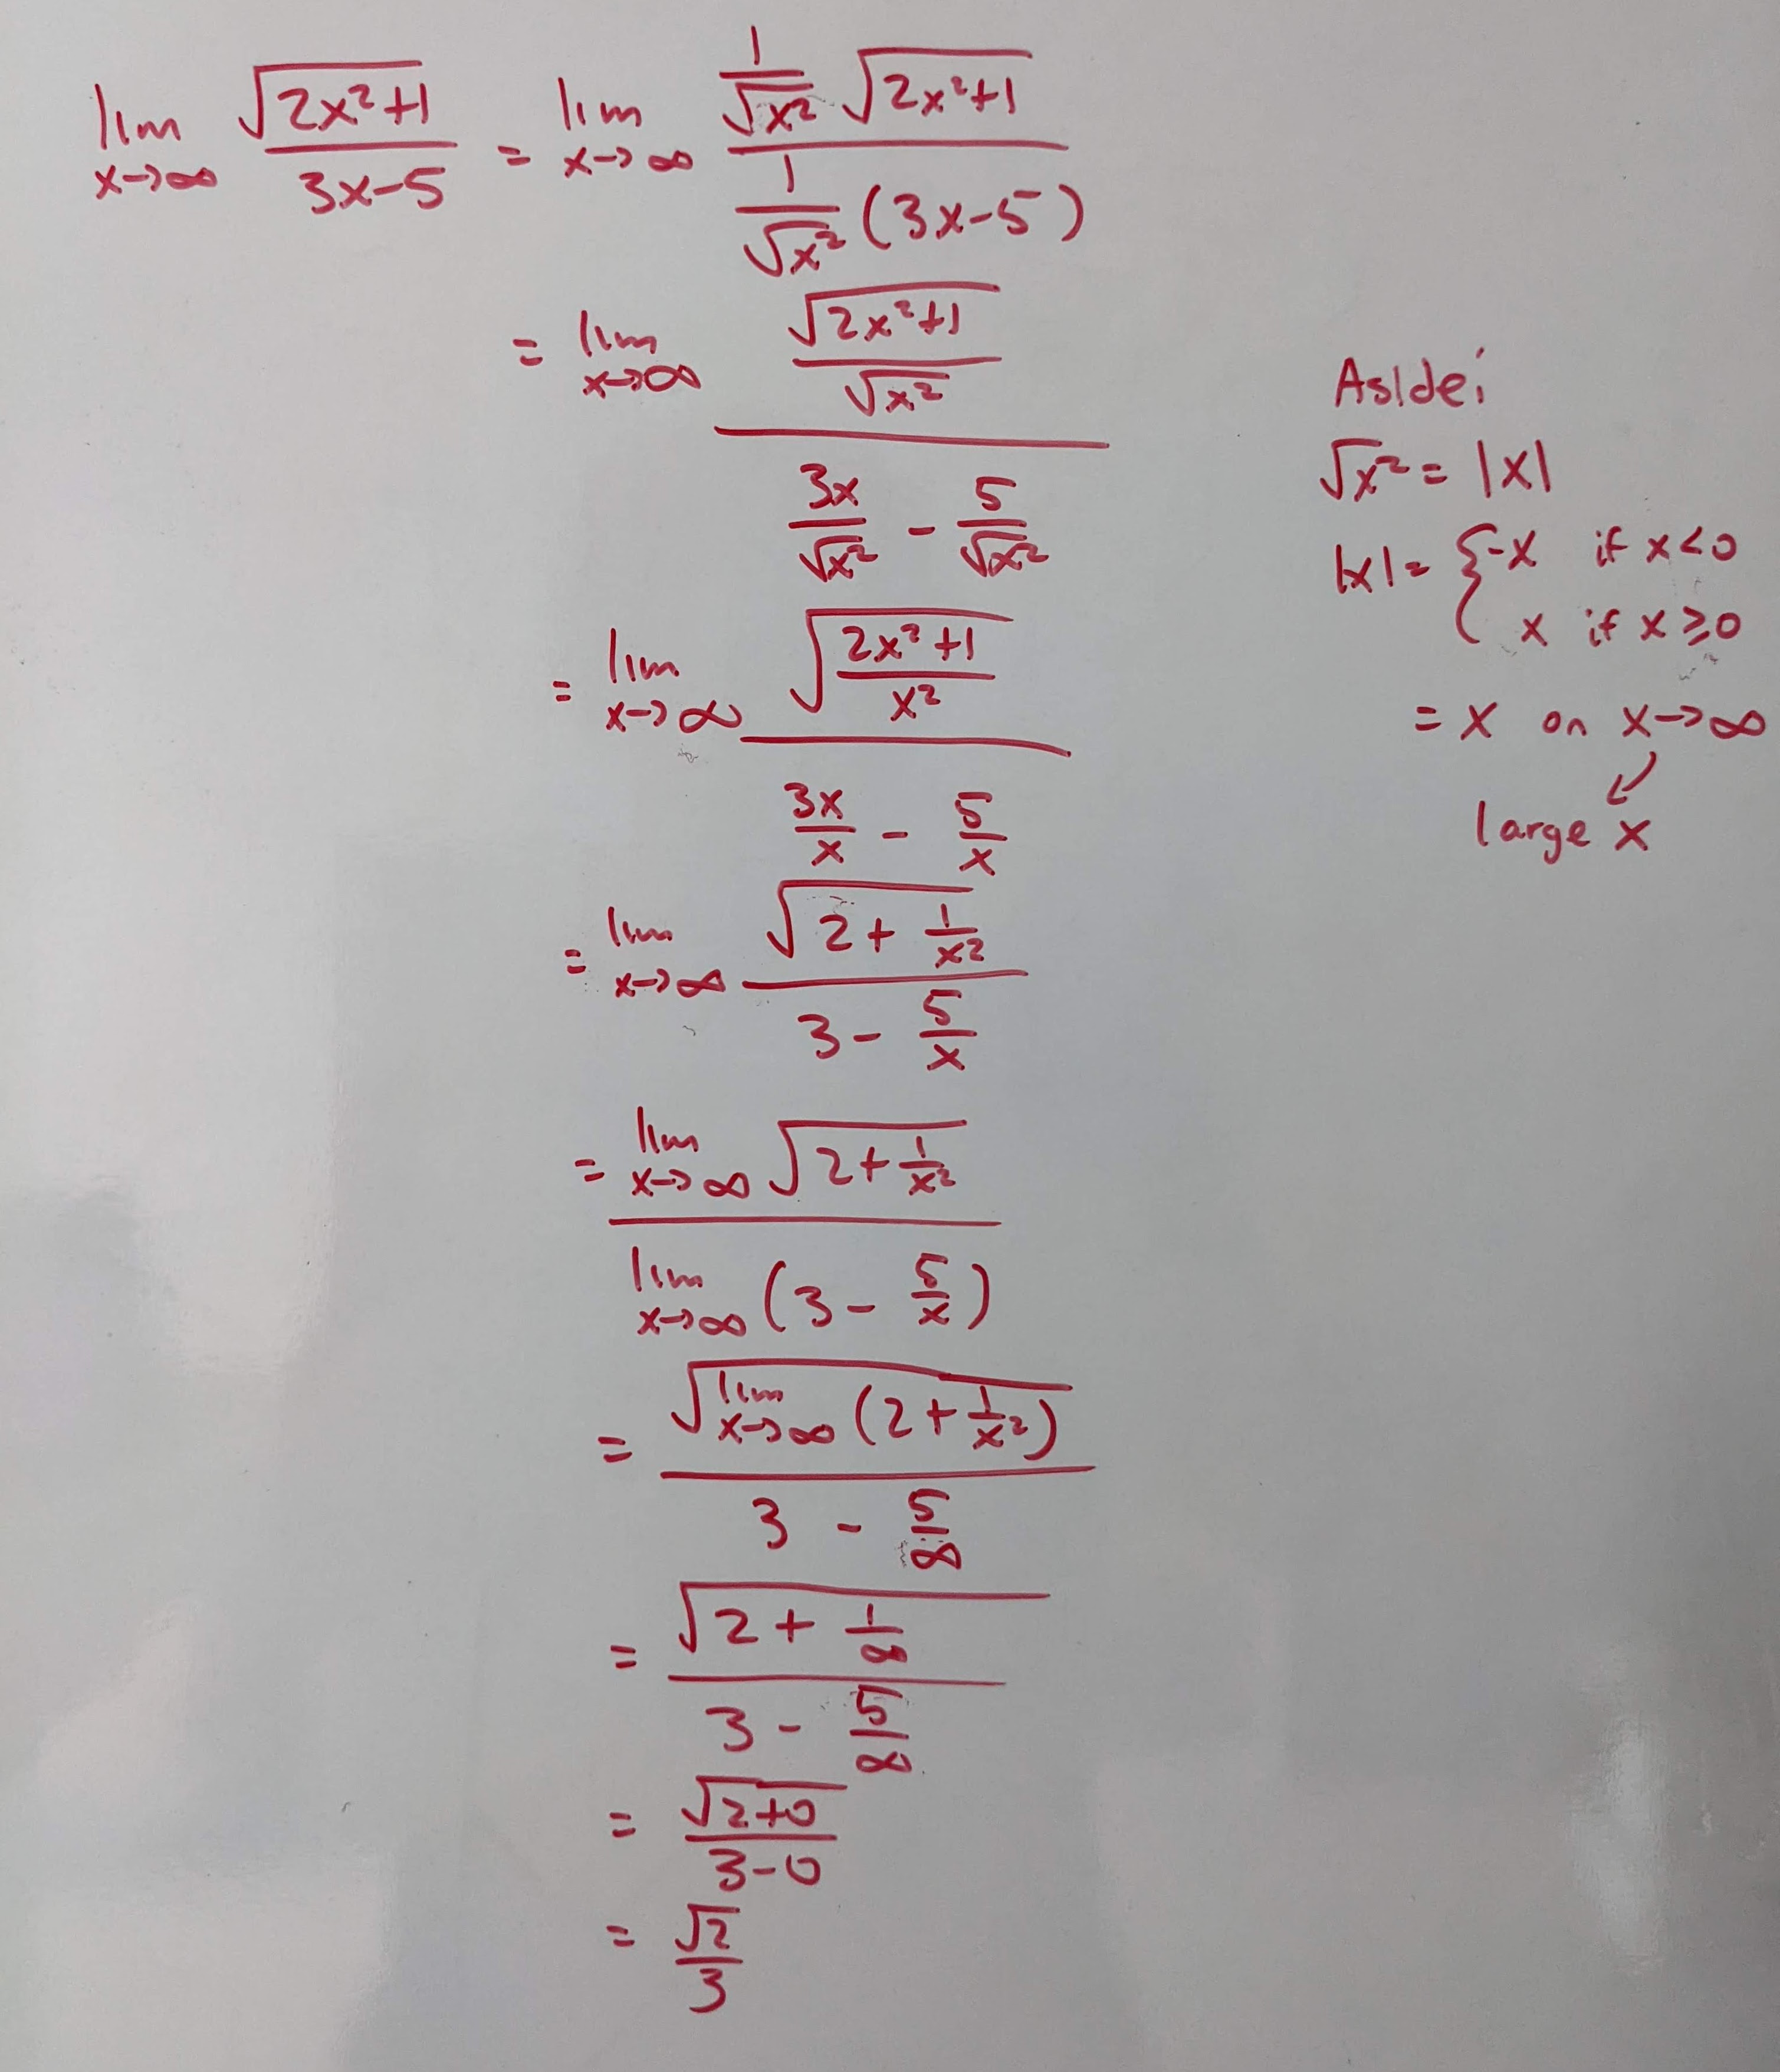 lim x→∞ √(2x²+1) / (3x-5) = lim x→∞ (1/√x²) √(2x²+1) / ((1/√x²)(3x-5))
= lim x→∞ (√(2x²+1) / √x²) / (3x/√x² - 5/√x²)
= lim x→∞ √((2x²+1)/x²) / (3x/x - 5/x)
= lim x→∞ √(2 + 1/x²) / (3 - 5/x)
= lim x→∞ √(2 + 1/x²) / lim x→∞ (3 - 5/x)
= √(lim x→∞ (2 + 1/x²)) / (3 - 5/∞)
= √(2 + 1/∞) / (3 - 5/∞)
= √(2+0) / (3-0)
= √2 / 3
Aside:
√x² = |x|
|x| = { -x if x<0
x if x≥0
= x on x→∞
large x